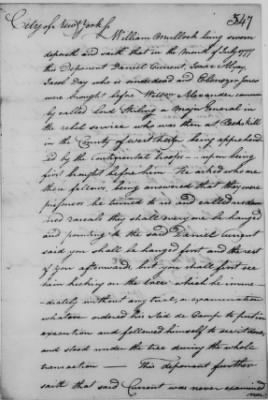 347
City of New York ss
William Mullock being sworn
deposeth and saith that in the Month of July 1777
this Deponent Daniel Current, Isaac
Jacob Day who is since dead and Ebenezer Jones
were brought before William Alexander commonly
called Lord Stirling a Major General in
the rebel service who was then at Peekskill
in the County of West Chester being apprehended
by the Continental troops — upon being
first brought before him He asked who are
these fellows, being answered that they were
prisoners he turned to us and called us
rascals they shall every one be hanged
and pointing to the said Daniel Current
said you shall be hanged first and the rest
of you afterwards but you shall first see
him kicking on the tree which he imme-
diately without any trial, or examination
whatever ordered his Aid de Camp to put in
execution and followed himself to see it done,
and stood under the tree during the whole
transaction — This deponent further
saith that said Current was never examined